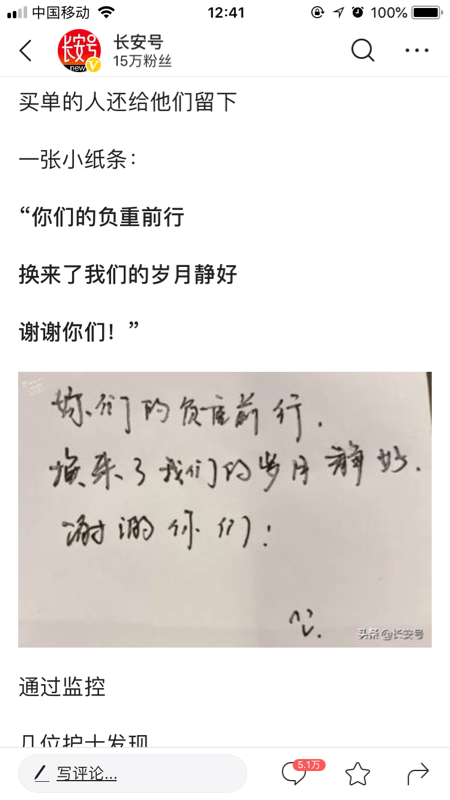 中国移动
12:41
100%
长安号
new
15万粉丝
买单的人还给他们留下
一张小纸条：
“你们的负重前行
换来了我们的岁月静好
谢谢你们！”
你们的负重前行.
换来了我们的岁月静好.
谢谢你们!
头条@长安号
通过监控
几位护士发现
写评论...
5.1万